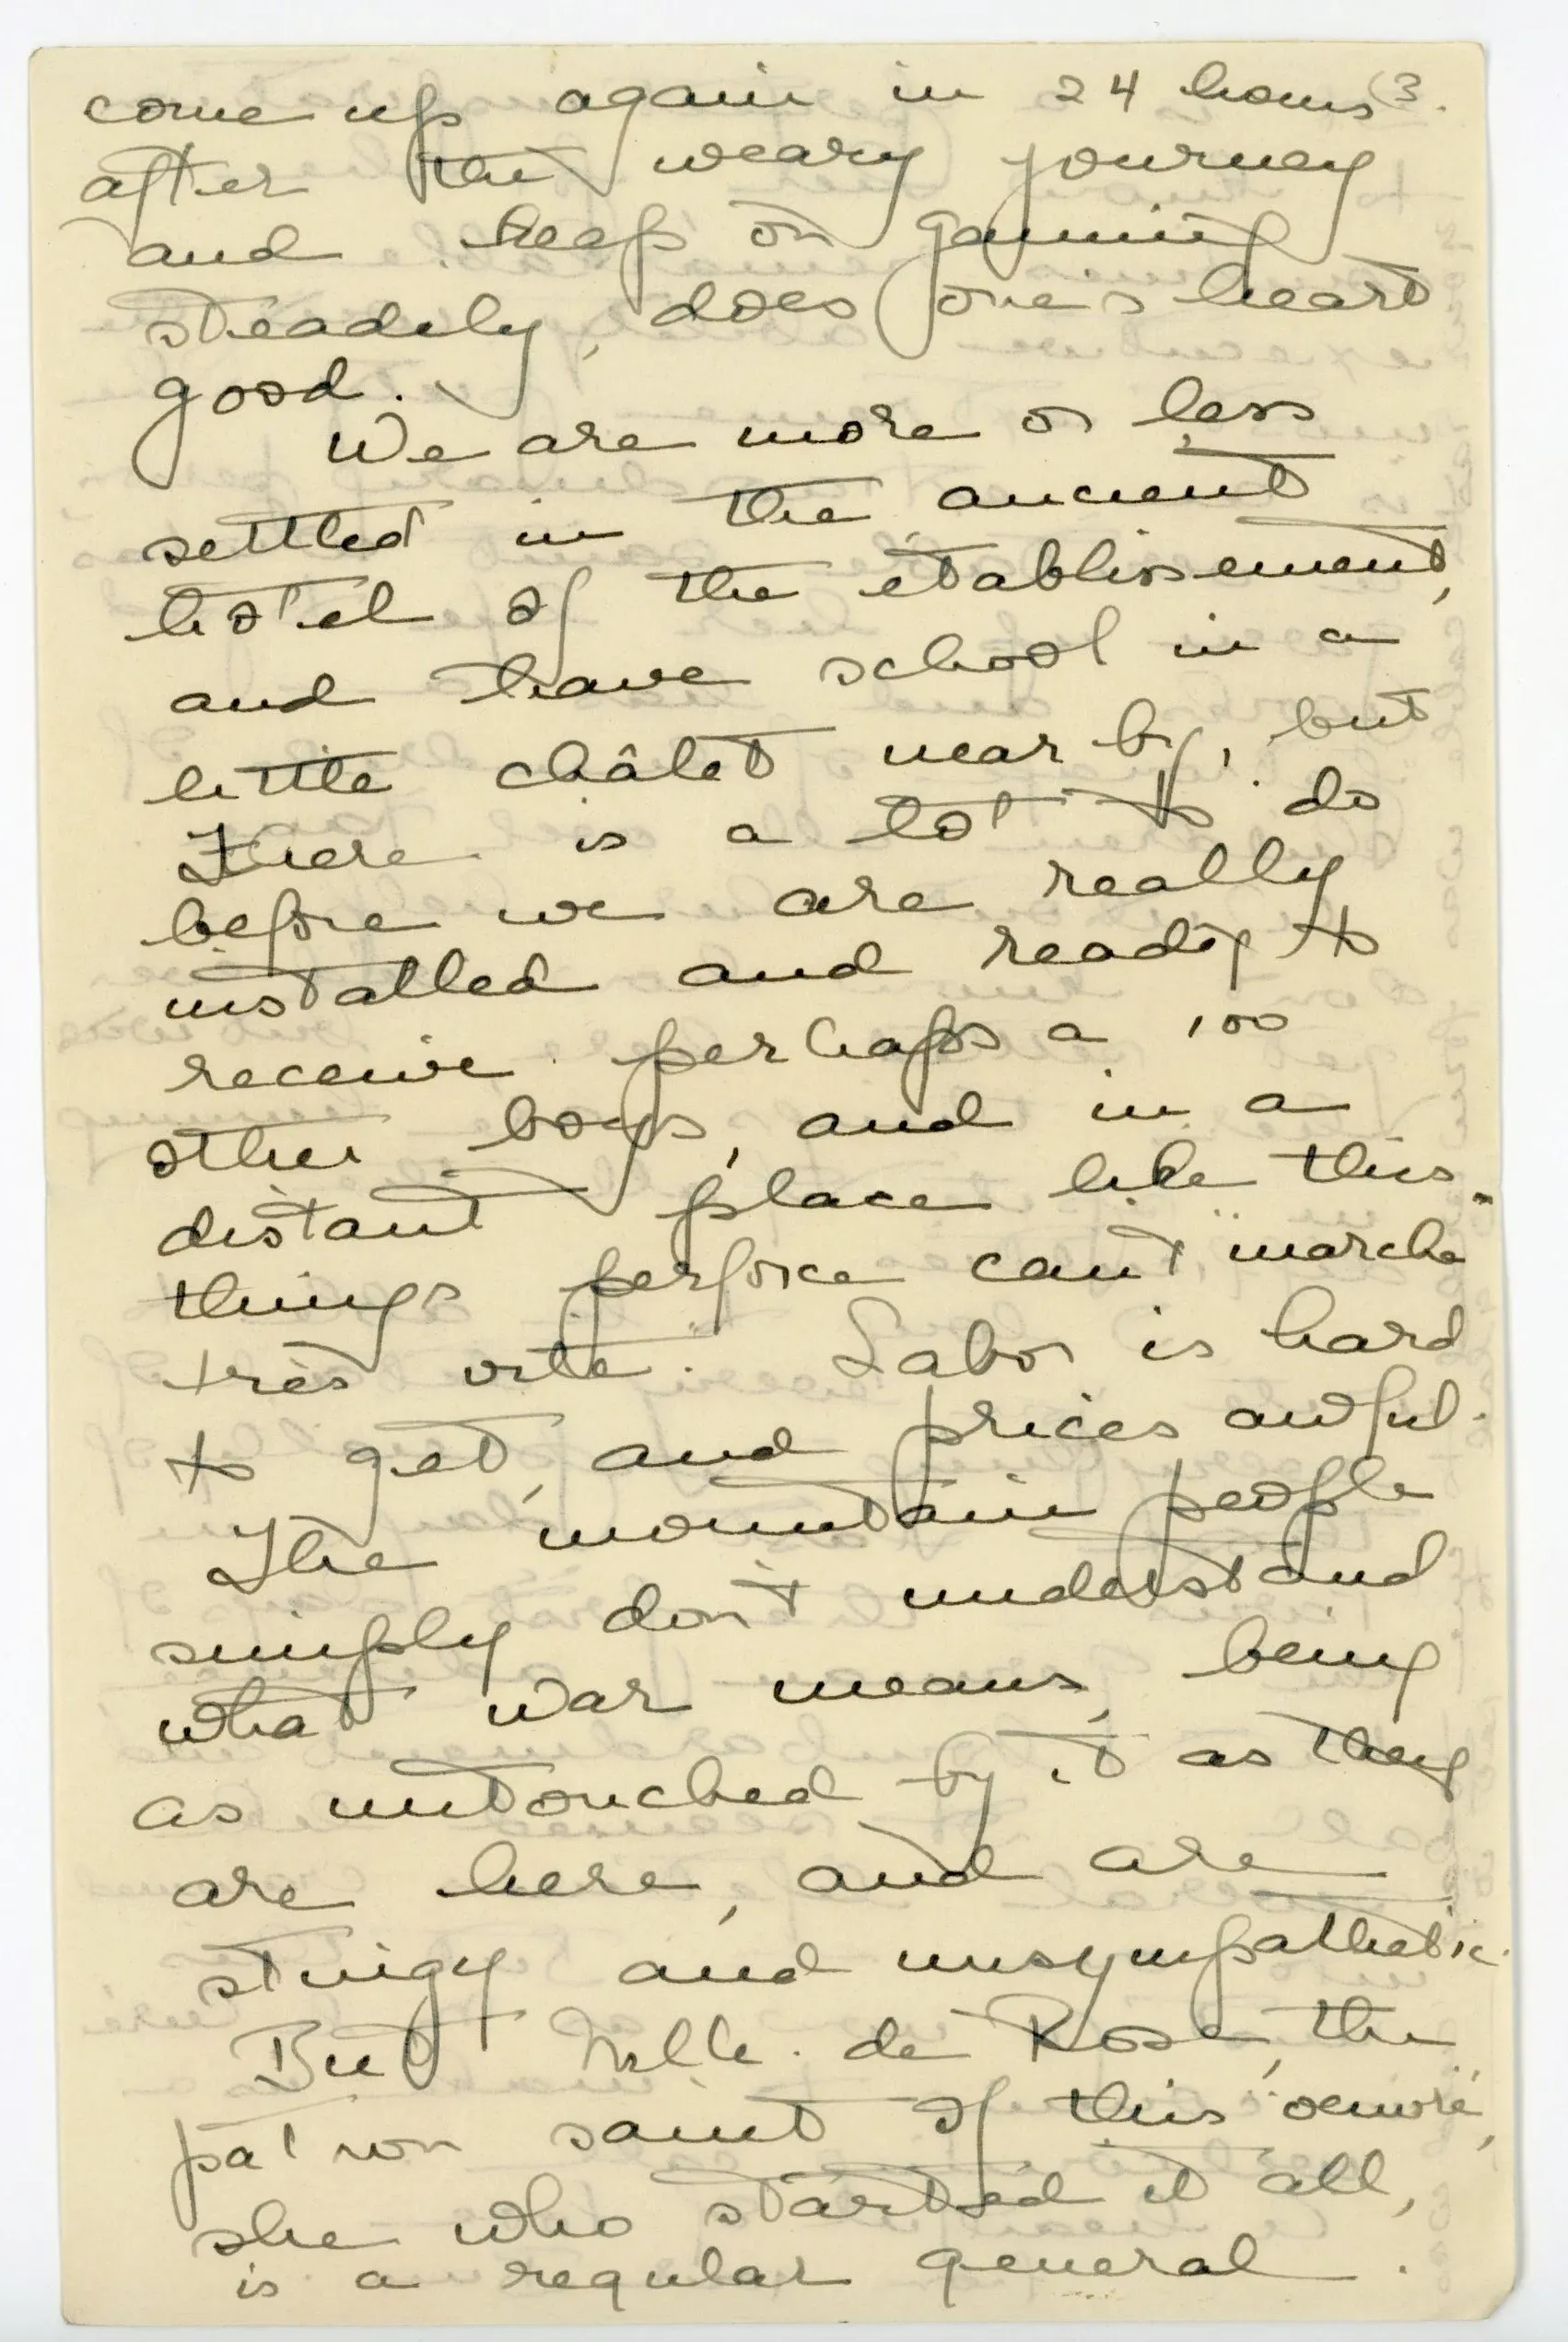 come up again in 24 hours (3.
after the weary journey
and keep on gaining
steadily, does one's heart
good.
We are more or less
settled in the ancient
hotel of the établissement,
and have school in a
little châlet near by, but
there is a lot to do
before we are really
installed and ready to
receive perhaps a 100
other boys, and in a
distant place like this
things perforce can't "marche
très vite". Labor is hard
to get, and prices awful.
The mountain people
simply don't understand
what war means, being
as untouched by it as they
are here, and are
stingy and unsympathetic.
But Mlle. de Rose, the
patron saint of this "oeuvre",
she who started it all,
is a regular general.